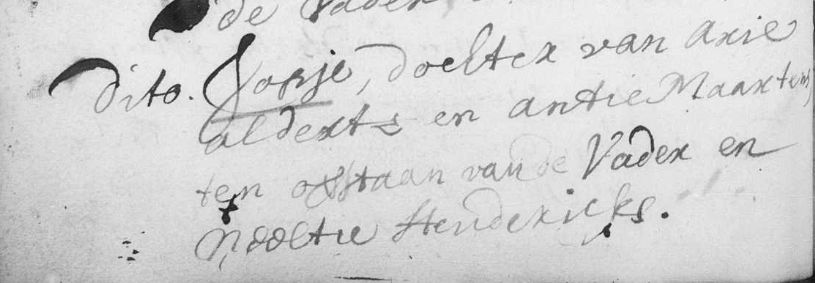 de Vader
dito. Jopje, doehter van arie
alderts en antie Maartens
ten opstaan van de Vader en
Neeltie Henderieks.